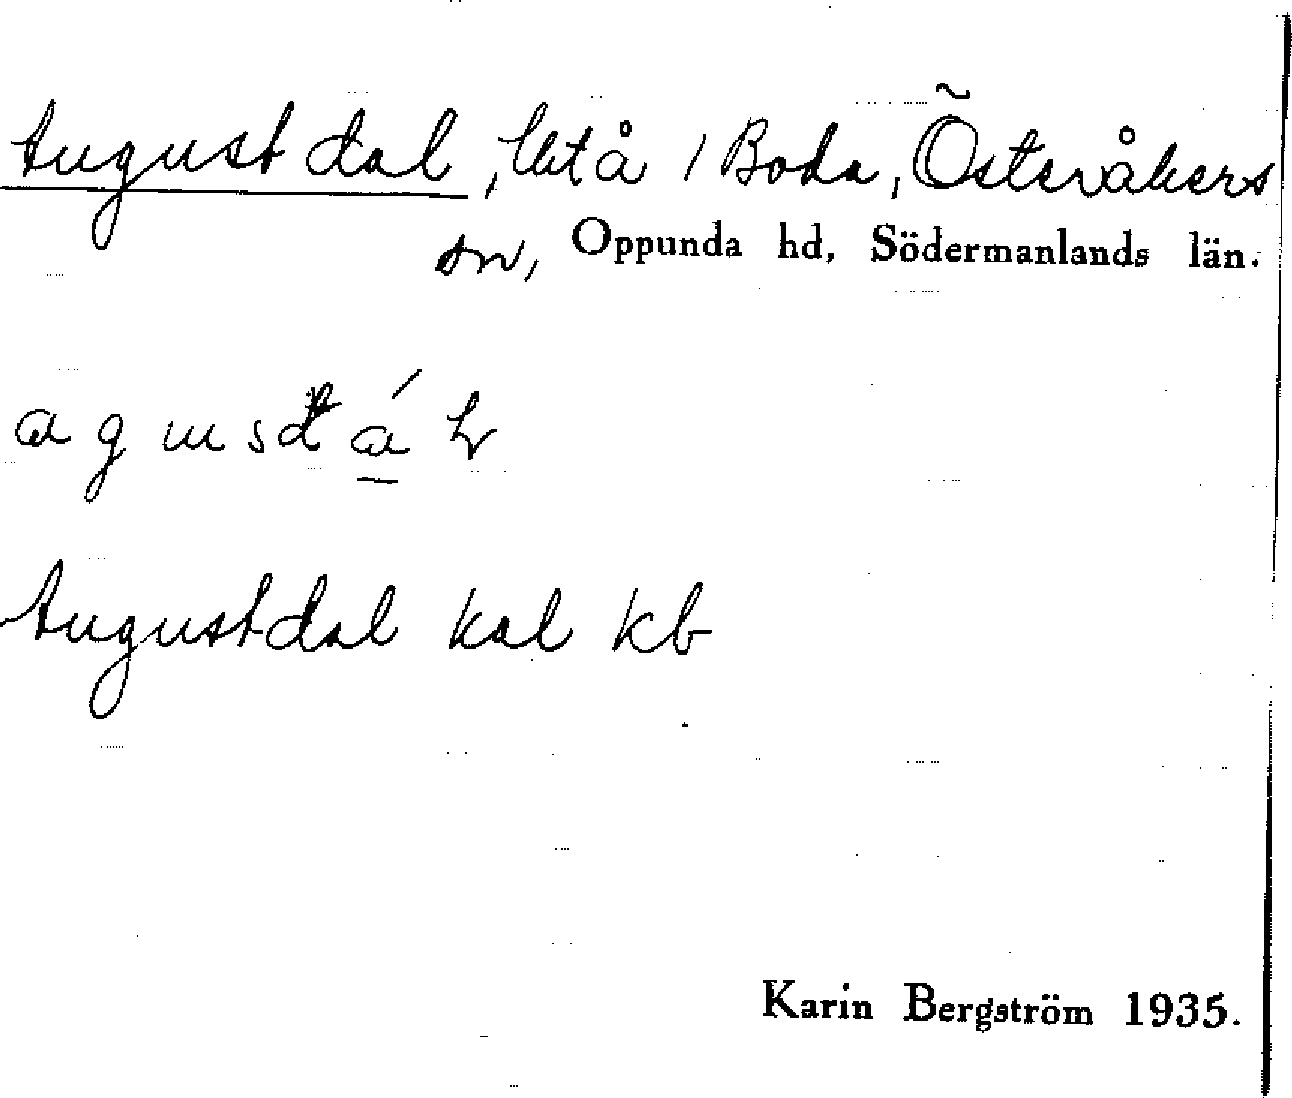 Augustdal, lht å / Boda, Österåkers
sn, Oppunda hd, Södermanlands län.
Augustdal kal kb
Karin Bergström 1935.